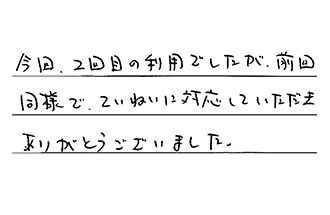 今回、2回目の利用でしたが、前回
同様で、ていねいに対応していただき
ありがとうございました。